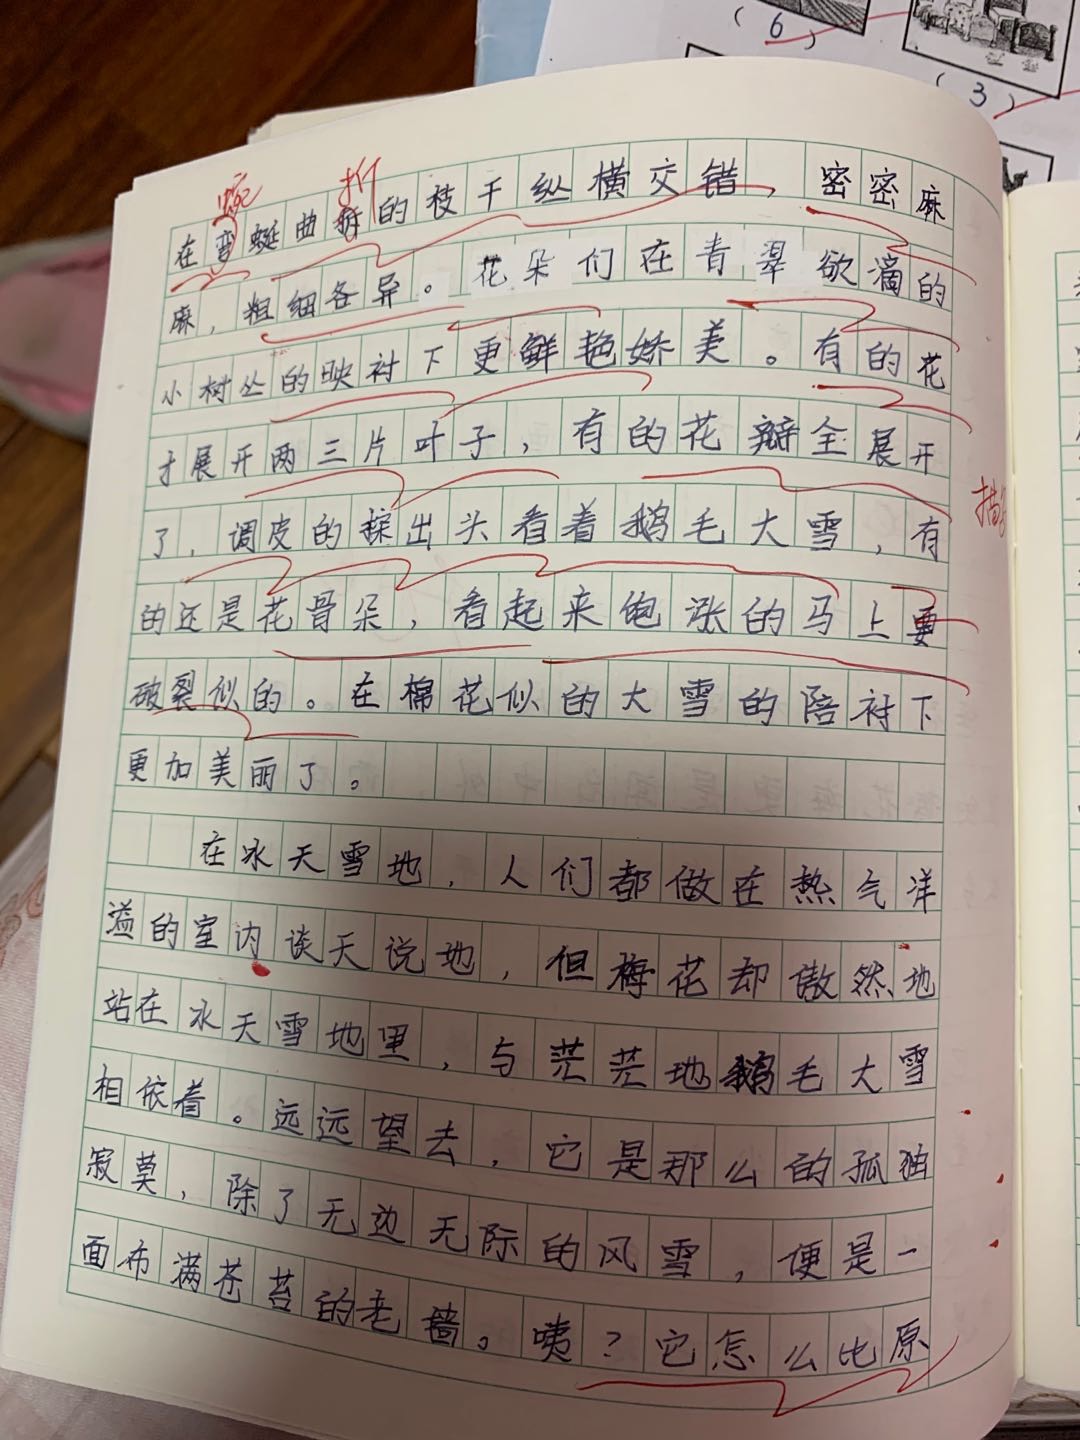 (6)
(3)
蜿 折
在弯蜓曲折的枝干纵横交错，密密麻
麻，粗细各异。花朵们在青翠欲滴的
小树丛的映衬下更鲜艳娇美。有的花
才展开两三片叶子，有的花瓣全展开
了，调皮的探出头看着鹅毛大雪，有
描写
的还是花骨朵，看起来饱涨的马上要
破裂似的。在棉花似的大雪的陪衬下
更加美丽了。
在冰天雪地，人们都做在热气洋
溢的室内谈天说地，但梅花却傲然地
站在冰天雪地里，与茫茫地鹅毛大雪
相依着。远远望去，它是那么的孤独
寂莫，除了无边无际的风雪，便是一
面布满苍苔的老墙。咦？它怎么比原